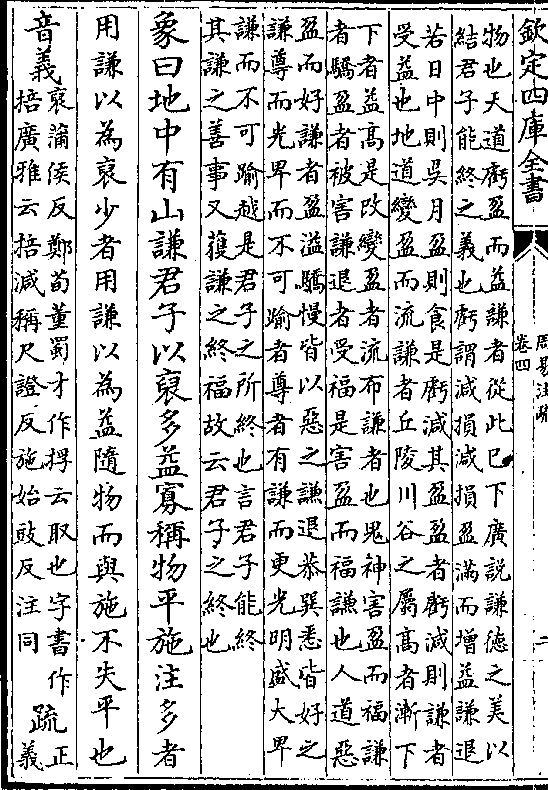 欽定四庫全書
周易注疏
卷四
二
物也天道虧盈而益謙者從此已下廣説謙德之美以
結君子能終之義也虧謂減損減損盈滿而增益謙退
若日中則昃月盈則食是虧減其盈盈者虧減則謙者
受益也地道變盈而流謙者丘陵川谷之屬高者漸下
下者益高是改變盈者流布謙者也鬼神害盈而福謙
者驕盈者被害謙退者受福是害盈而福謙也人道惡
盈而好謙者盈溢驕慢皆以惡之謙退恭巽悉皆好之
謙尊而光卑而不可踰者尊者有謙而更光明盛大卑
謙而不可踰越是君子之所終也言君子能終
其謙之善事又獲謙之終福故云君子之終也
象曰地中有山謙君子以裒多益寡稱物平施注多者
用謙以為裒少者用謙以為益隨物而與施不失平也
音義
裒蒲侯反鄭荀董蜀才作捊云取也字書作
掊廣雅云掊減稱尺證反施始豉反注同
疏
正
義